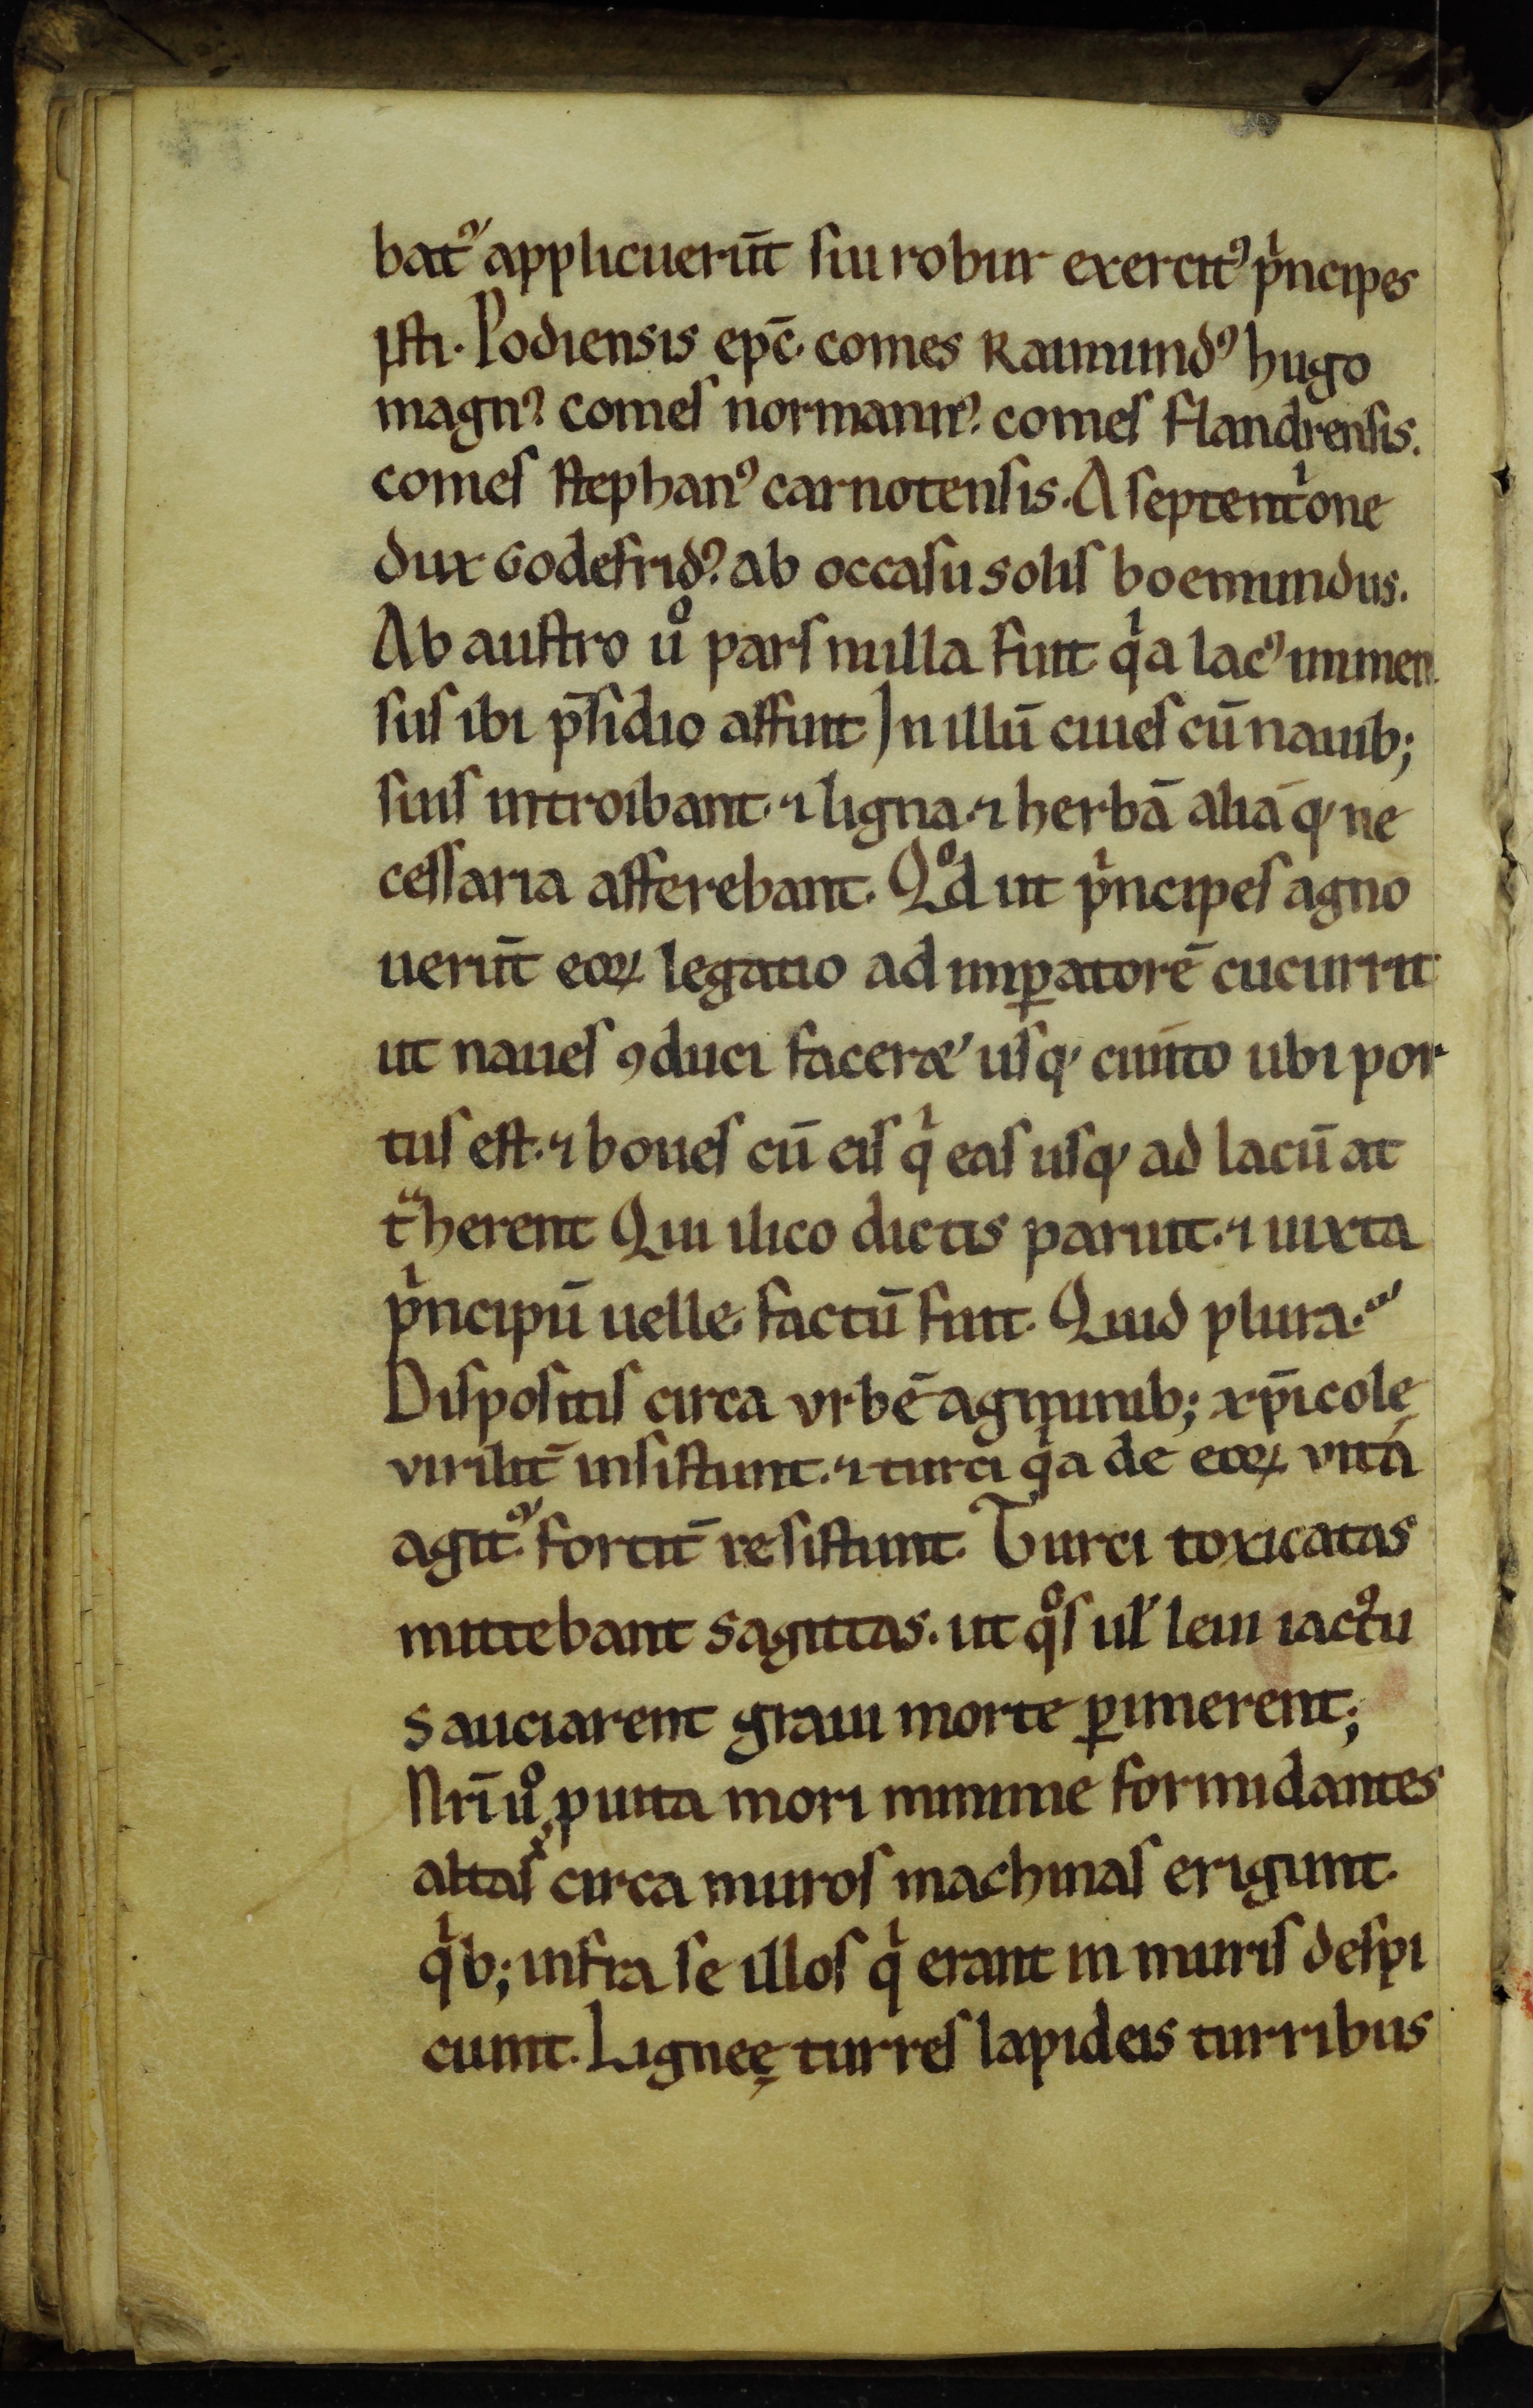 batꝰ applicuerūt sui robur exercitꝰ pͥncipes
isti. Podiensis epc̄. comes Raimundꝰ hugo
magnꝰ comes normannꝰ. comes flandrensis.
comes stephanꝰ carnotensis. A septentͥone
dux Godefridꝰ. ab occasu solis boemundus.
Ab austro uͦ pars nulla fuit qͥa lacꝰ inmen
sus ibi p̄sidio affuit In illū ciues cū nauib;
suis introibant. ⁊ ligna. ⁊ herbā aliaq; ne
cessaria afferebant. Qͦd ut pͥncipes agno
uerūt eoꝝ legatio ad imꝑatorē cucurrit
ut naues ꝯduci faceret usq; ciuito ubi por
tus est. ⁊ boues cū eis qͥ eas usq; ad lacū at
tᷓherent Qui ilico dictis paruit. ⁊ iuxta
pͥncipū uelle. factū fuit. Quid plura.
Dispositis circa vrbē agminib; xp̄icolę
virilit̄ insistunt. ⁊ turci qͥa de eoꝝ vita
agitꝰ. fortit̄ resistunt. Turci toxicatas
mittebant sagittas. ut qͦs ul' leui iactͧu
sauciarent graui morte ꝑimerent;
Nr̄i uͦ, p uita mori minime formidantes
altas circa muros machinas erigunt.
qͥb; infra se illos qͥ erant in muris despi
ciunt. Ligneę turres lapideis turribus